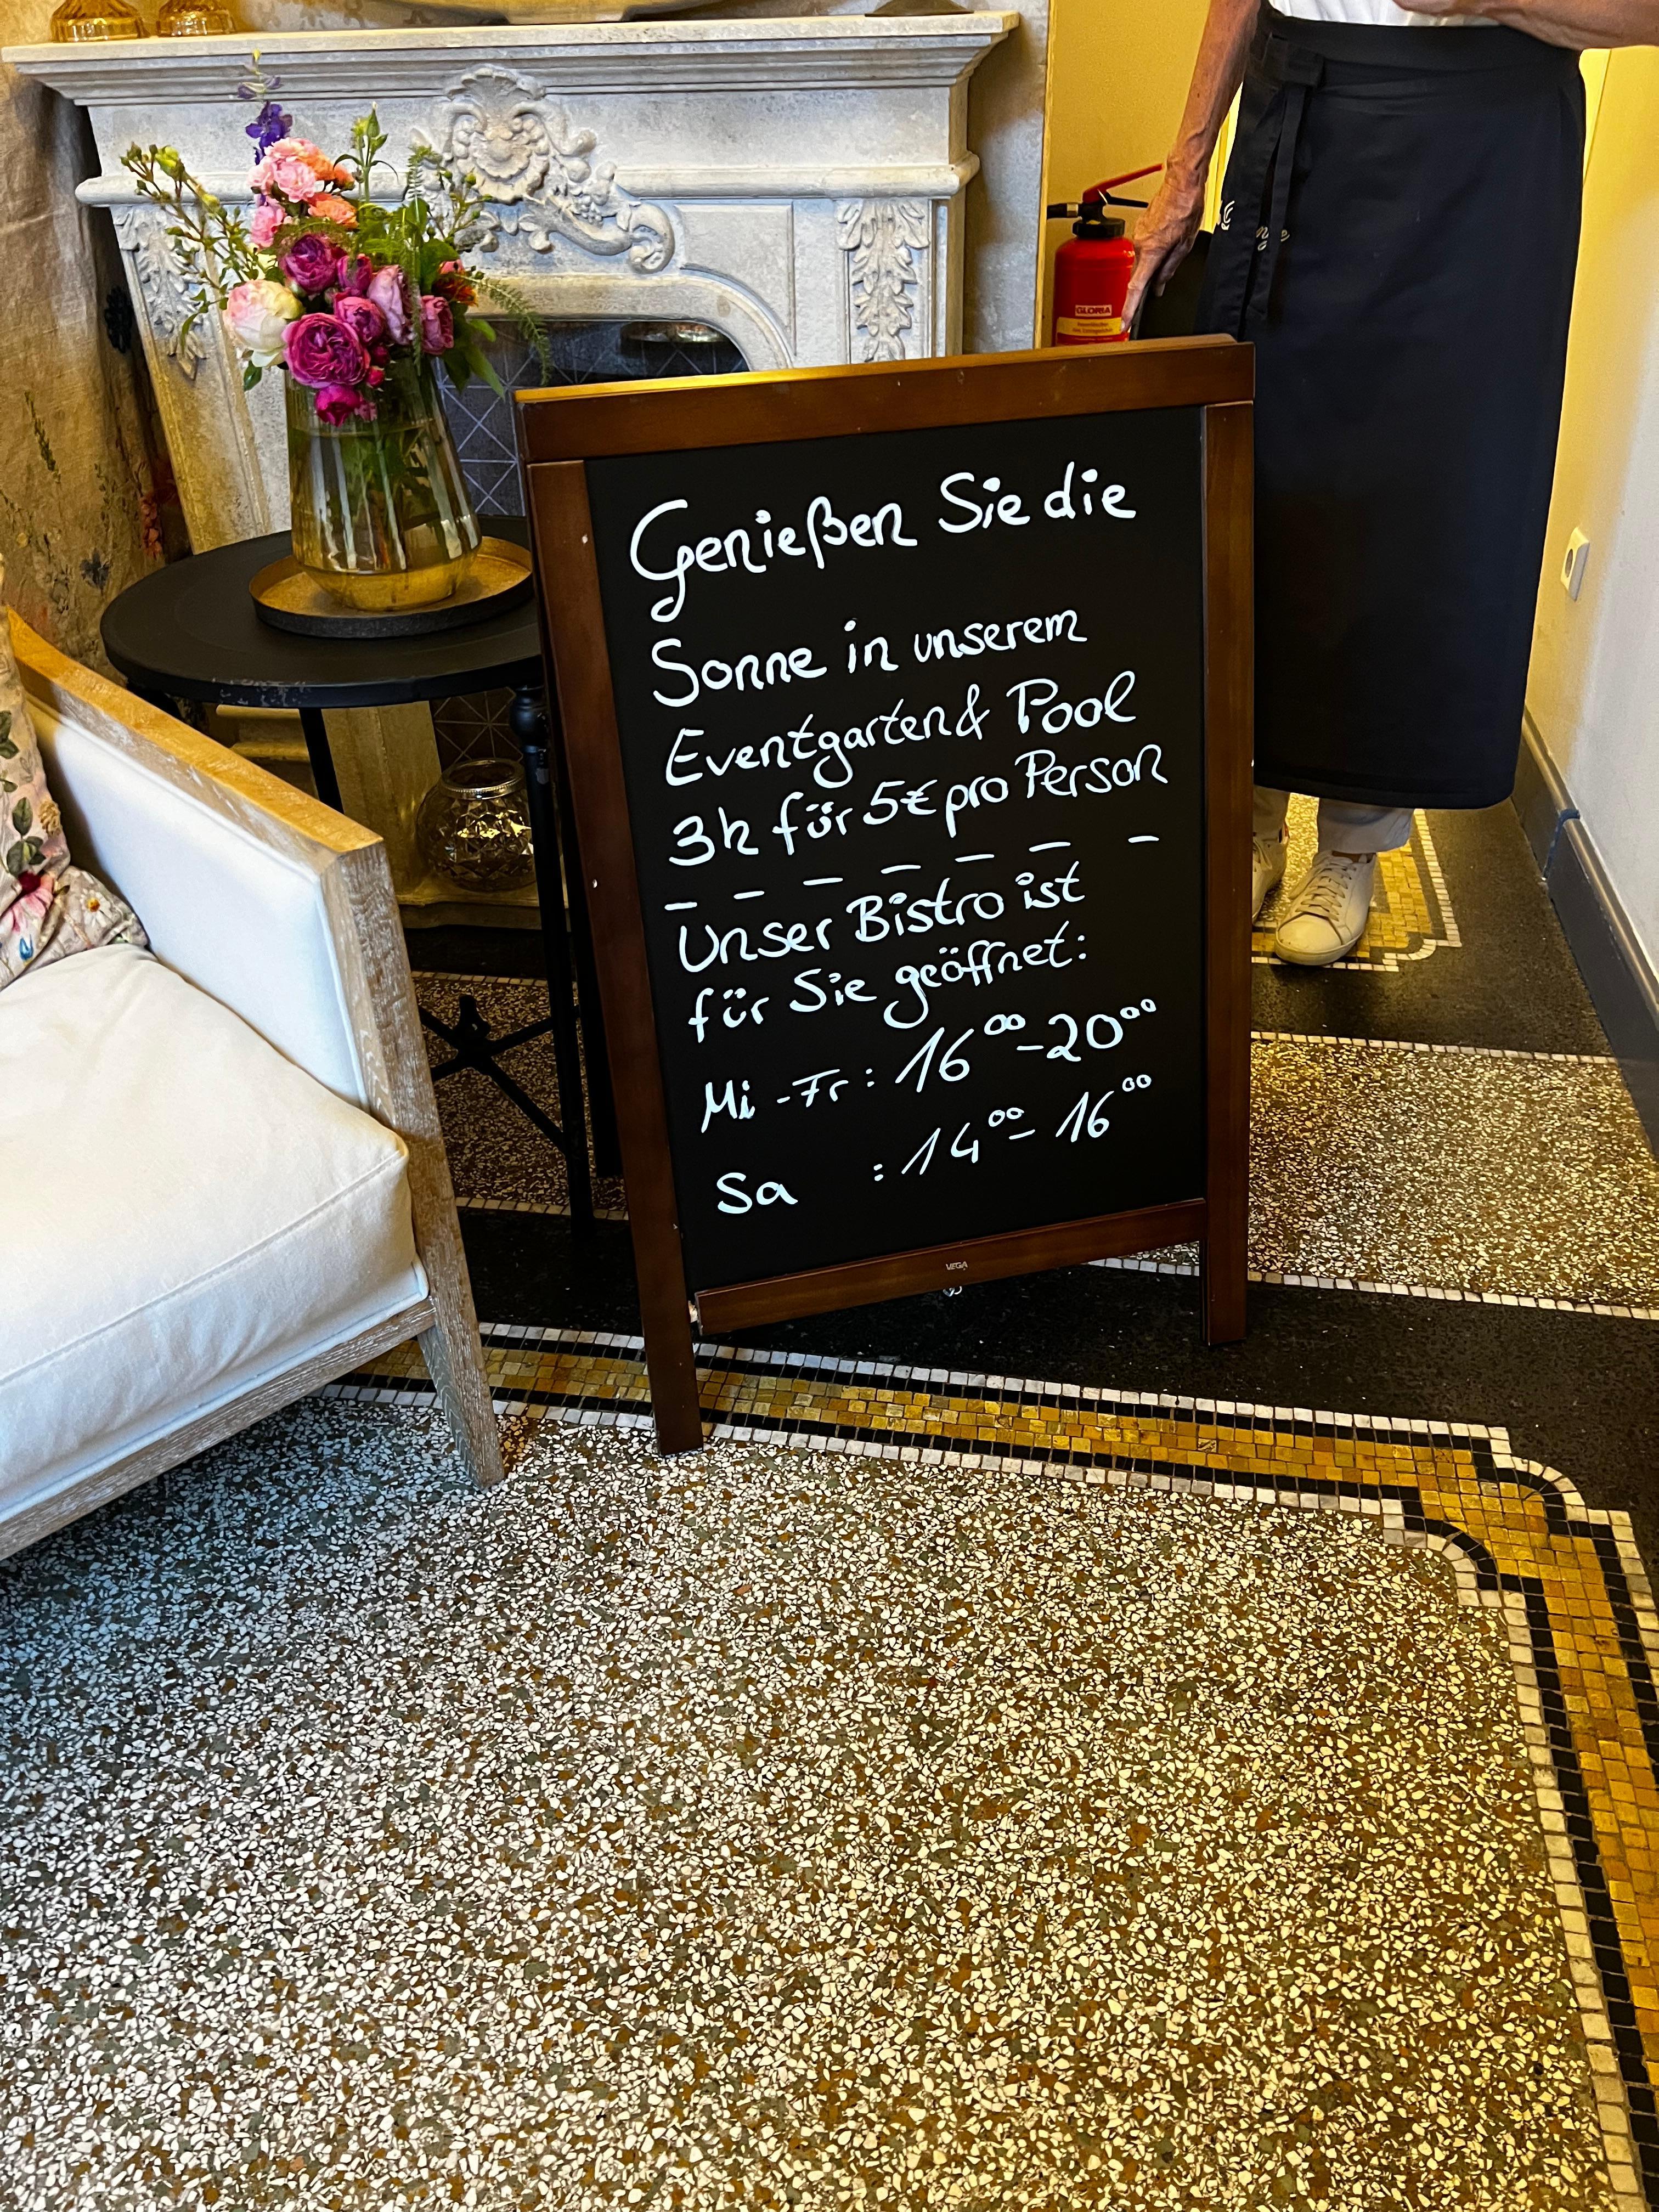 GLORIA
Genießen Sie die
Sonne in unserem
Eventgarten & Pool
3h für 5€ pro Person
Unser Bistro ist
für Sie geöffnet:
Mi - Fr : 16⁰⁰ - 20⁰⁰
Sa : 14⁰⁰ - 16⁰⁰
VEGA